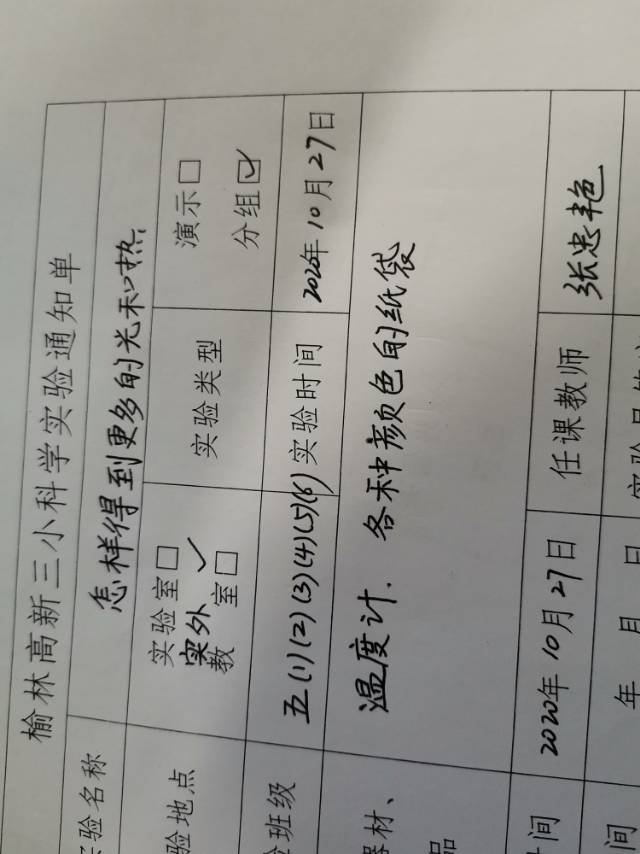 榆林高新三小科学实验通知单
验名称 怎样得到更多的光和热
验地点 实验室□ 室外✓ 教室□ 实验类型 演示□ 分组☑
班级 五(1)(2)(3)(4)(5)(6) 实验时间 2020年10月27日
器材、 温度计. 各种颜色的纸袋
品
间 2020年10月27日 任课教师 张忠艳
间 年 月 日 实验员